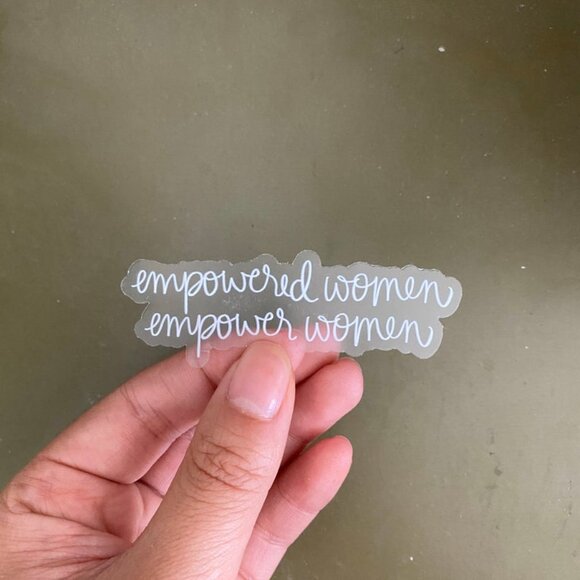 empowered women
empower women